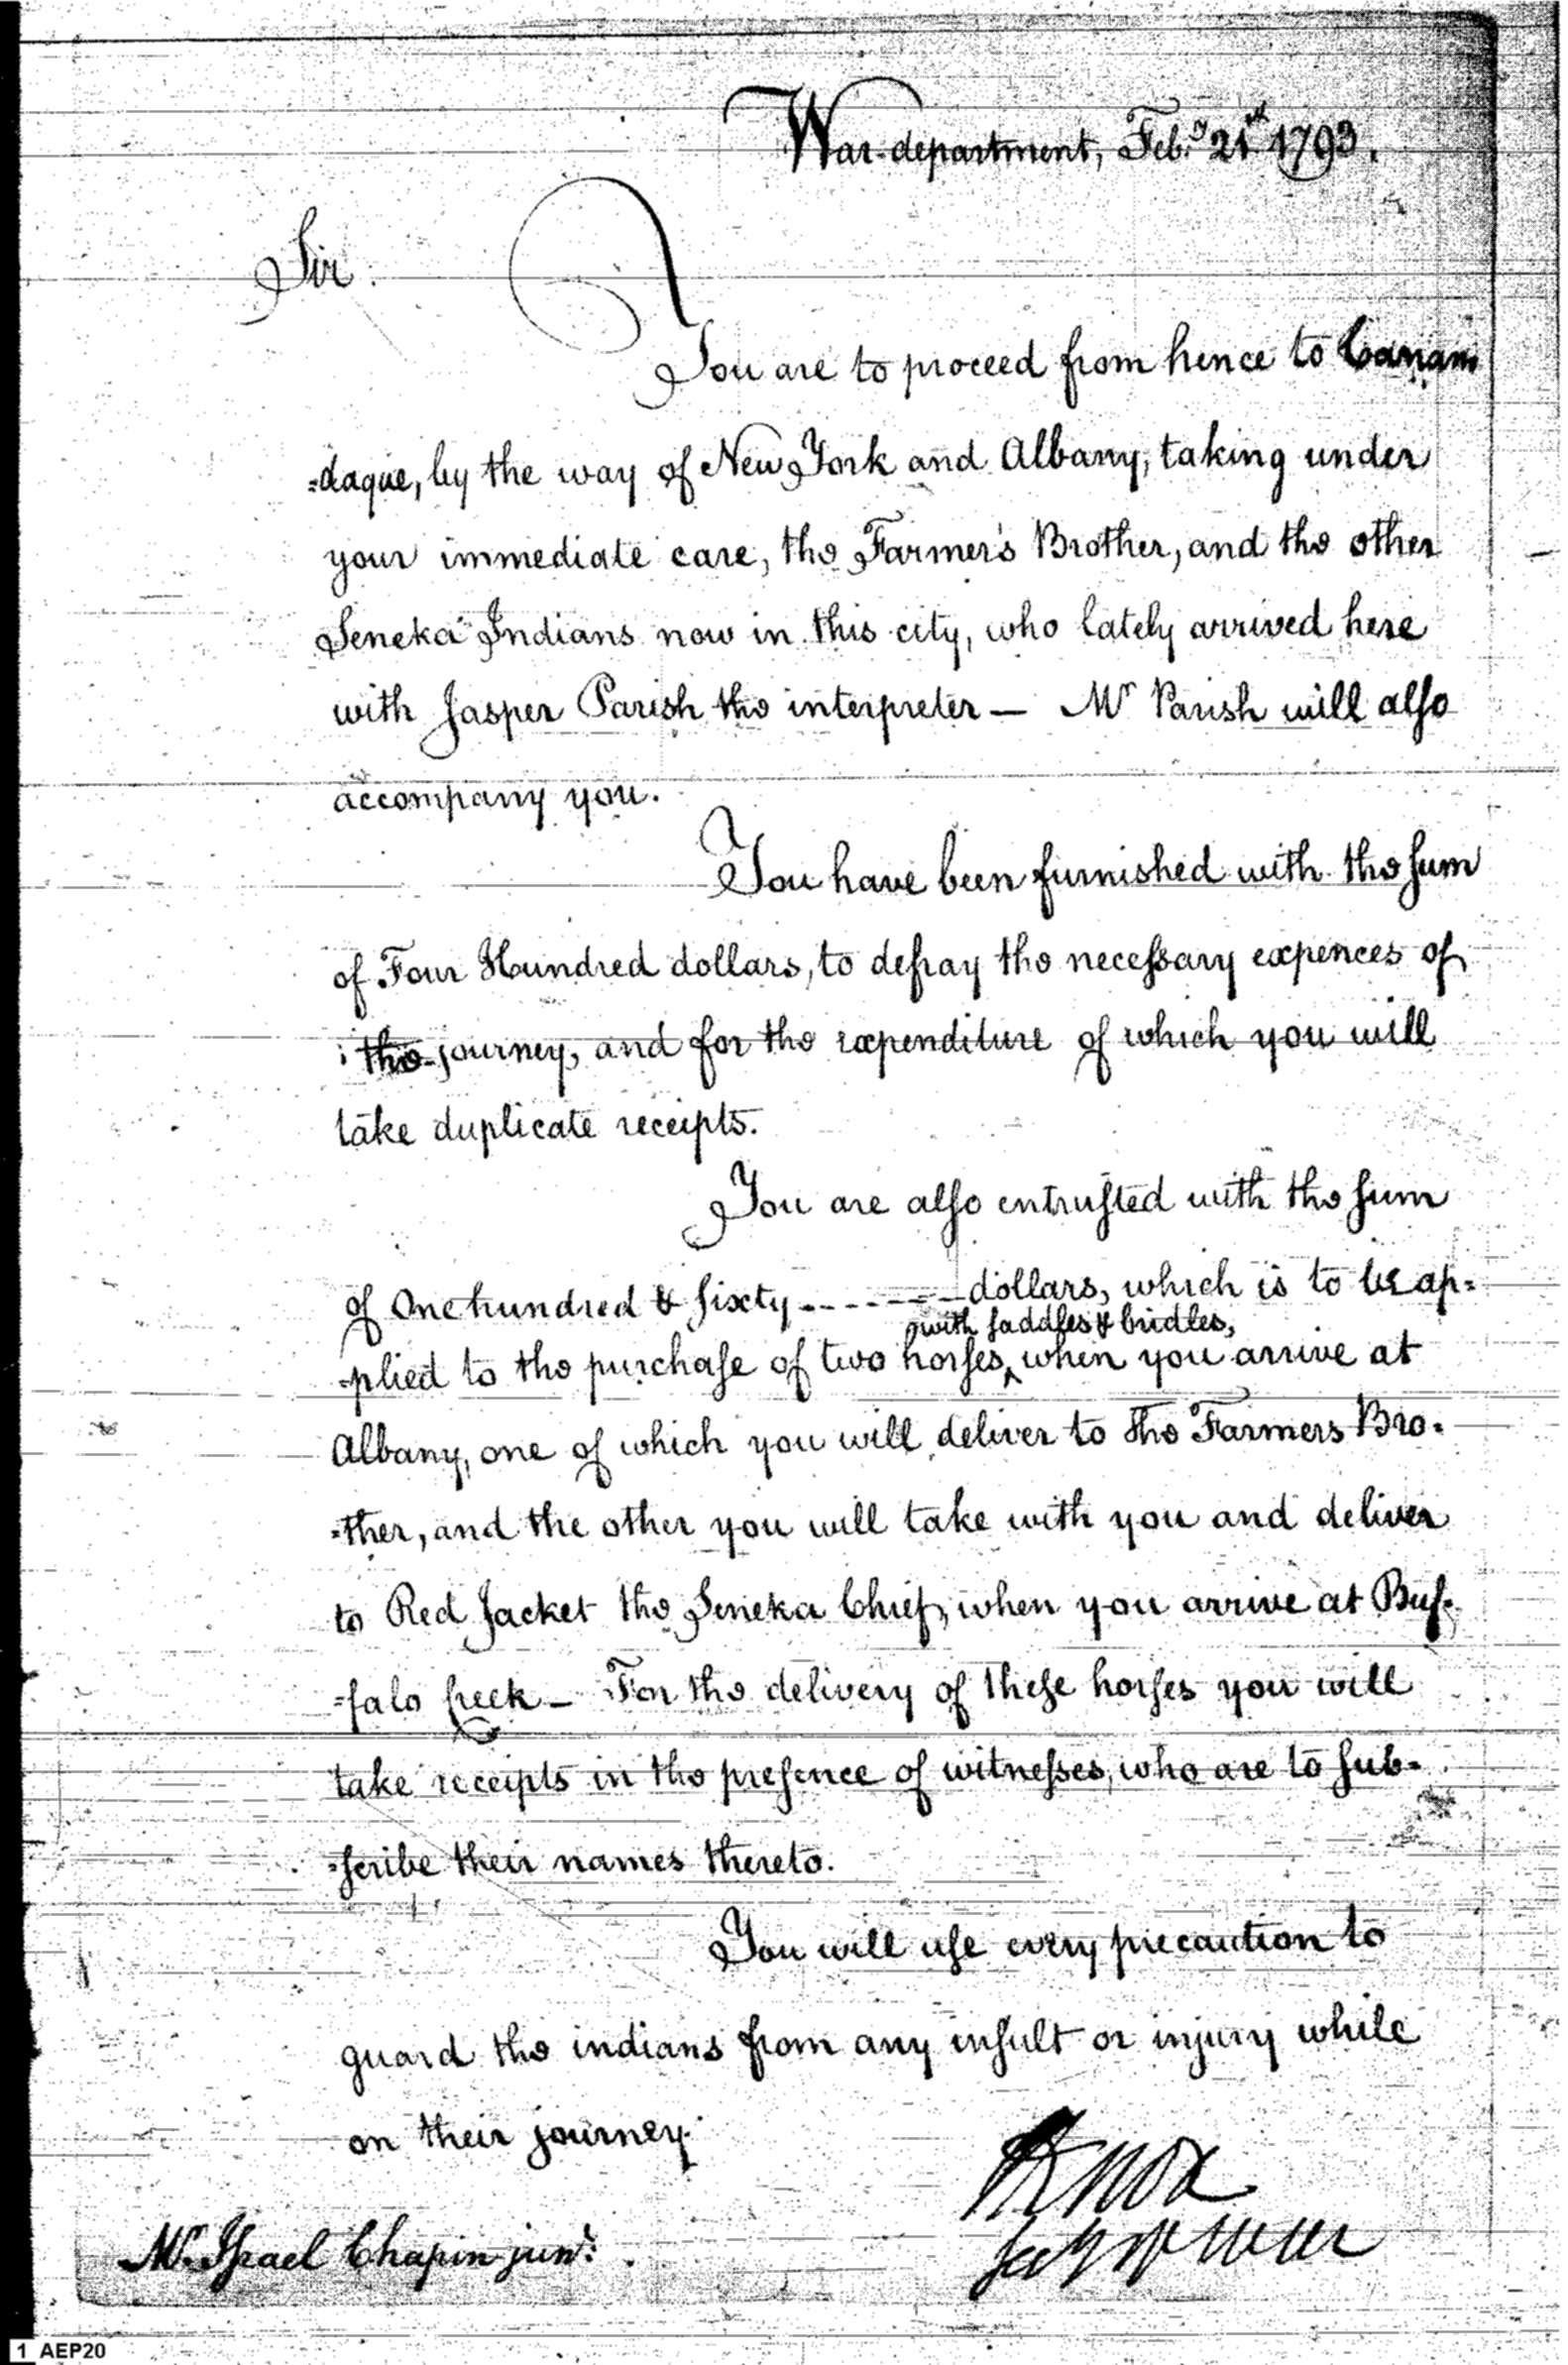 War-department, Feb.y 21st 1793.
Sir.
You are to proceed from hence to Canan
=daque, by the way of New York and Albany, taking under
your immediate care, the Farmer's Brother, and the other
Seneka Indians now in this city, who lately arrived here
with Jasper Parish the interpreter — Mr Parish will also
accompany you.
You have been furnished with the sum
of Four Hundred dollars, to defray the necessary expences of
the journey, and for the expenditure of which you will
take duplicate receipts.
You are also entrusted with the sum
of One hundred & sixty ------- dollars, which is to be ap=
with saddles & bridles,
=plied to the purchase of two horses^ when you arrive at
Albany, one of which you will deliver to the Farmers Bro=
=ther, and the other you will take with you and deliver
to Red Jacket the Seneka Chief, when you arrive at Buf=
=falo Creek — For the delivery of these horses you will
take receipts in the presence of witnesses, who are to sub=
=scribe their names thereto.
You will use every precaution to
guard the indians from any insult or injury while
on their journey.
HKnox
Secy of War
Mr. Israel Chapin junr.
1 AEP20